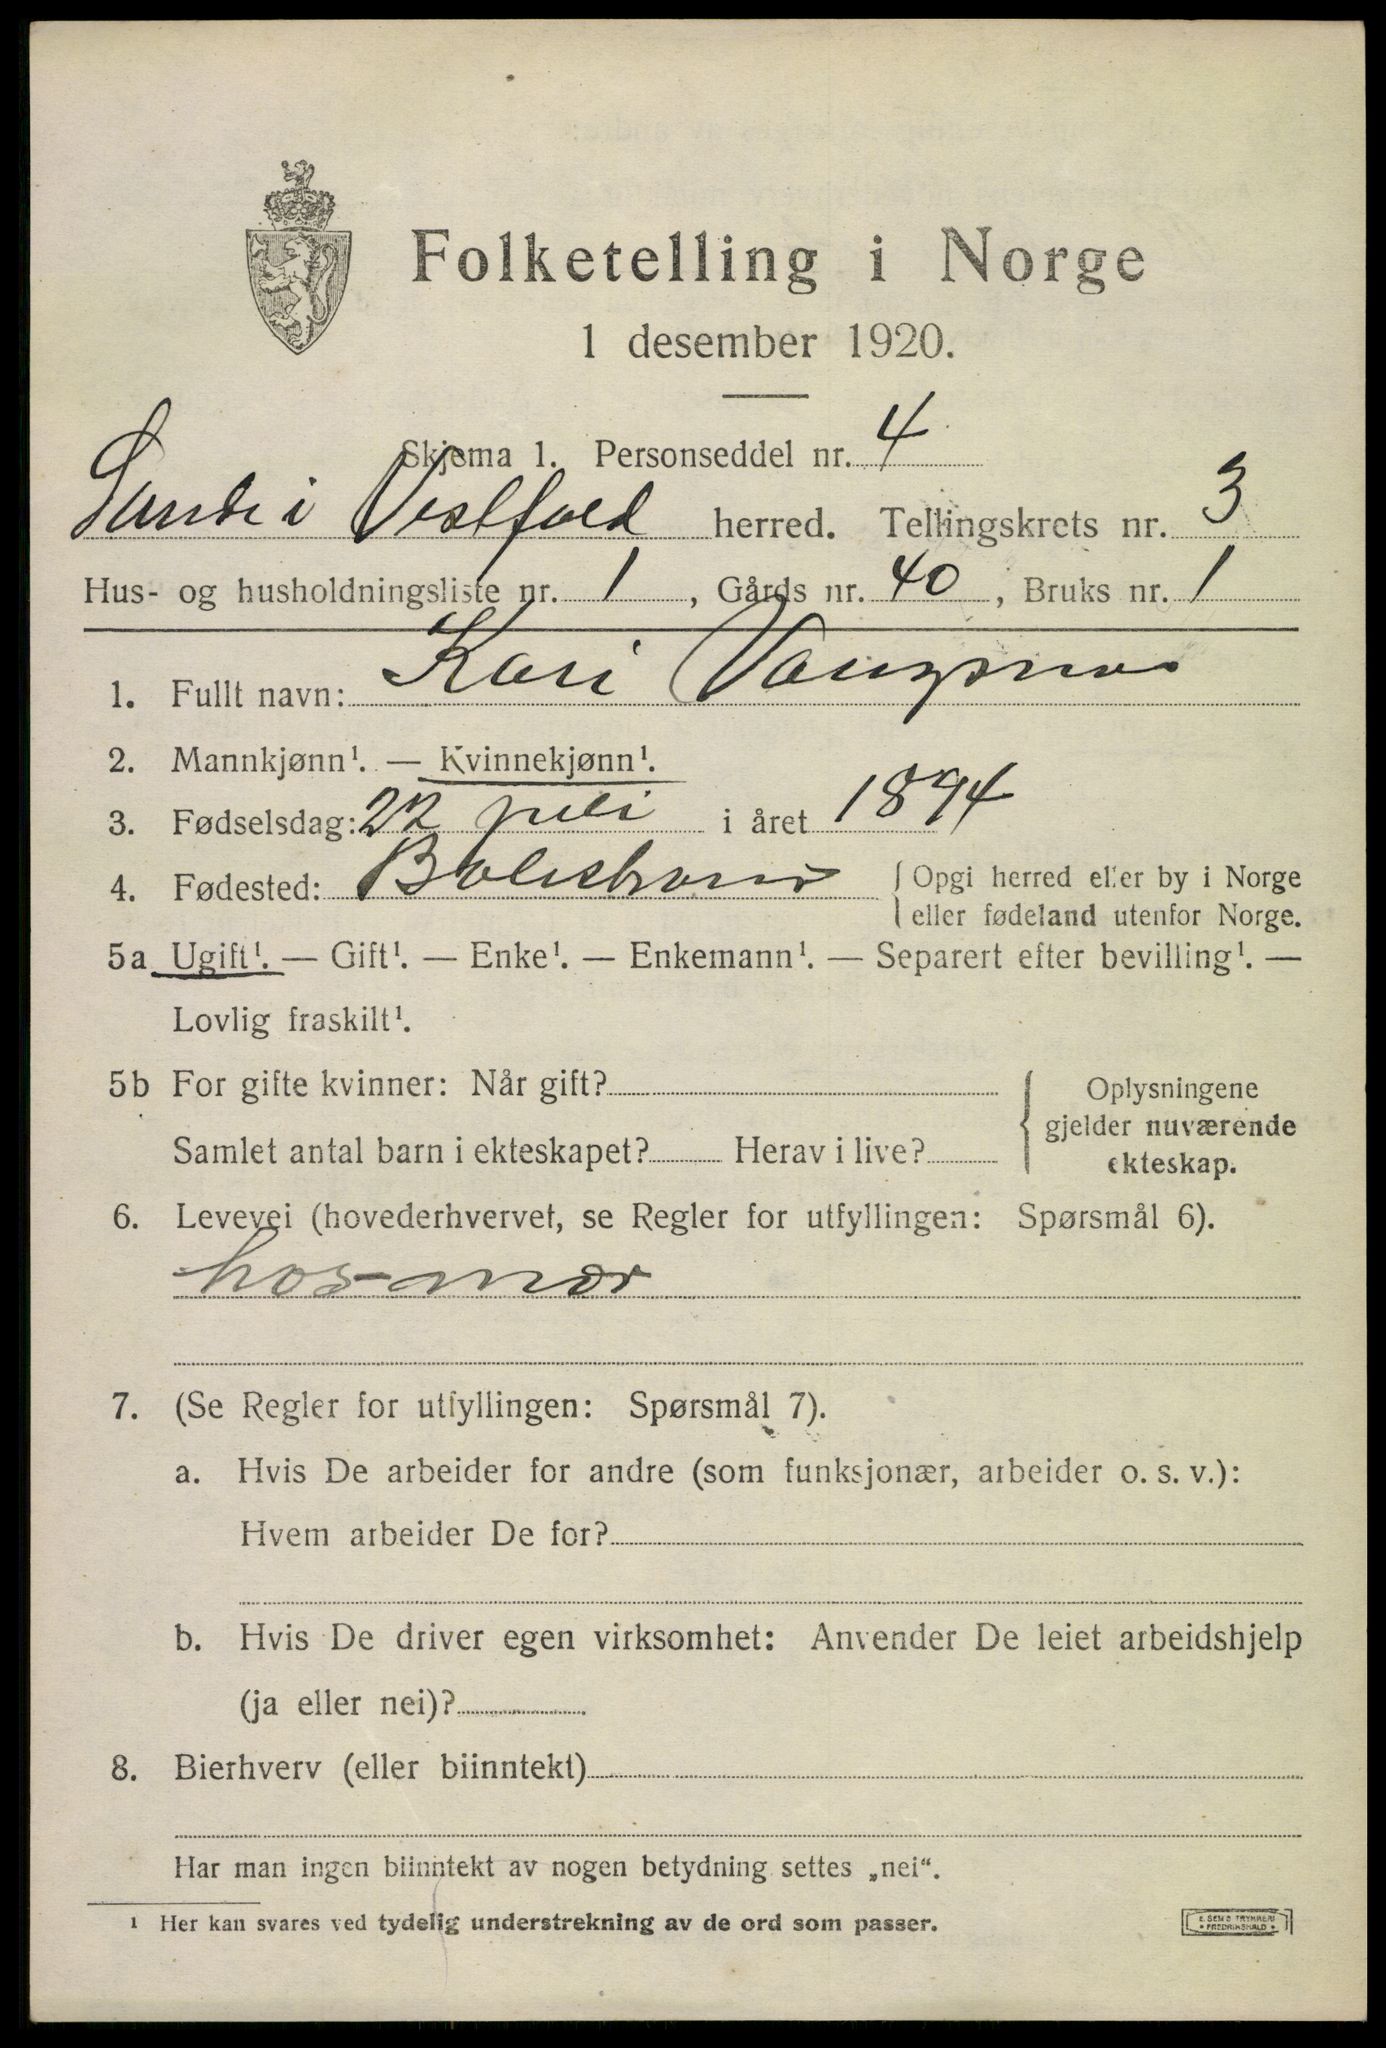 Folketelling i Norge
1 desember 1920.
Skjema 1. Personseddel nr. 4
Sande i Vestfold herred. Tellingskrets nr. 3
Hus- og husholdningsliste nr. 1, Gårds nr. 40, Bruks nr. 1
1. Fullt navn: Kari Vangsnes
2. Mannkjønn¹. — Kvinnekjønn¹.
3. Fødselsdag: 22 juli i året 1894
4. Fødested: Balestrand { Opgi herred eller by i Norge
eller fødeland utenfor Norge.
5a Ugift¹. — Gift¹. — Enke¹. — Enkemann¹. — Separert efter bevilling¹. —
Lovlig fraskilt¹.
5b For gifte kvinner: Når gift? { Oplysningene
gjelder nuværende
Samlet antal barn i ekteskapet? Herav i live? ekteskap.
6. Levevei (hovederhvervet, se Regler for utfyllingen: Spørsmål 6).
hos mor
7. (Se Regler for utfyllingen: Spørsmål 7).
a. Hvis De arbeider for andre (som funksjonær, arbeider o. s. v.):
Hvem arbeider De for?
b. Hvis De driver egen virksomhet: Anvender De leiet arbeidshjelp
(ja eller nei)?
8. Bierhverv (eller biinntekt)
Har man ingen biinntekt av nogen betydning settes „nei“.
¹ Her kan svares ved tydelig understrekning av de ord som passer.
E. SEM'S TRYKKERI
* FREDRIKSHALD *